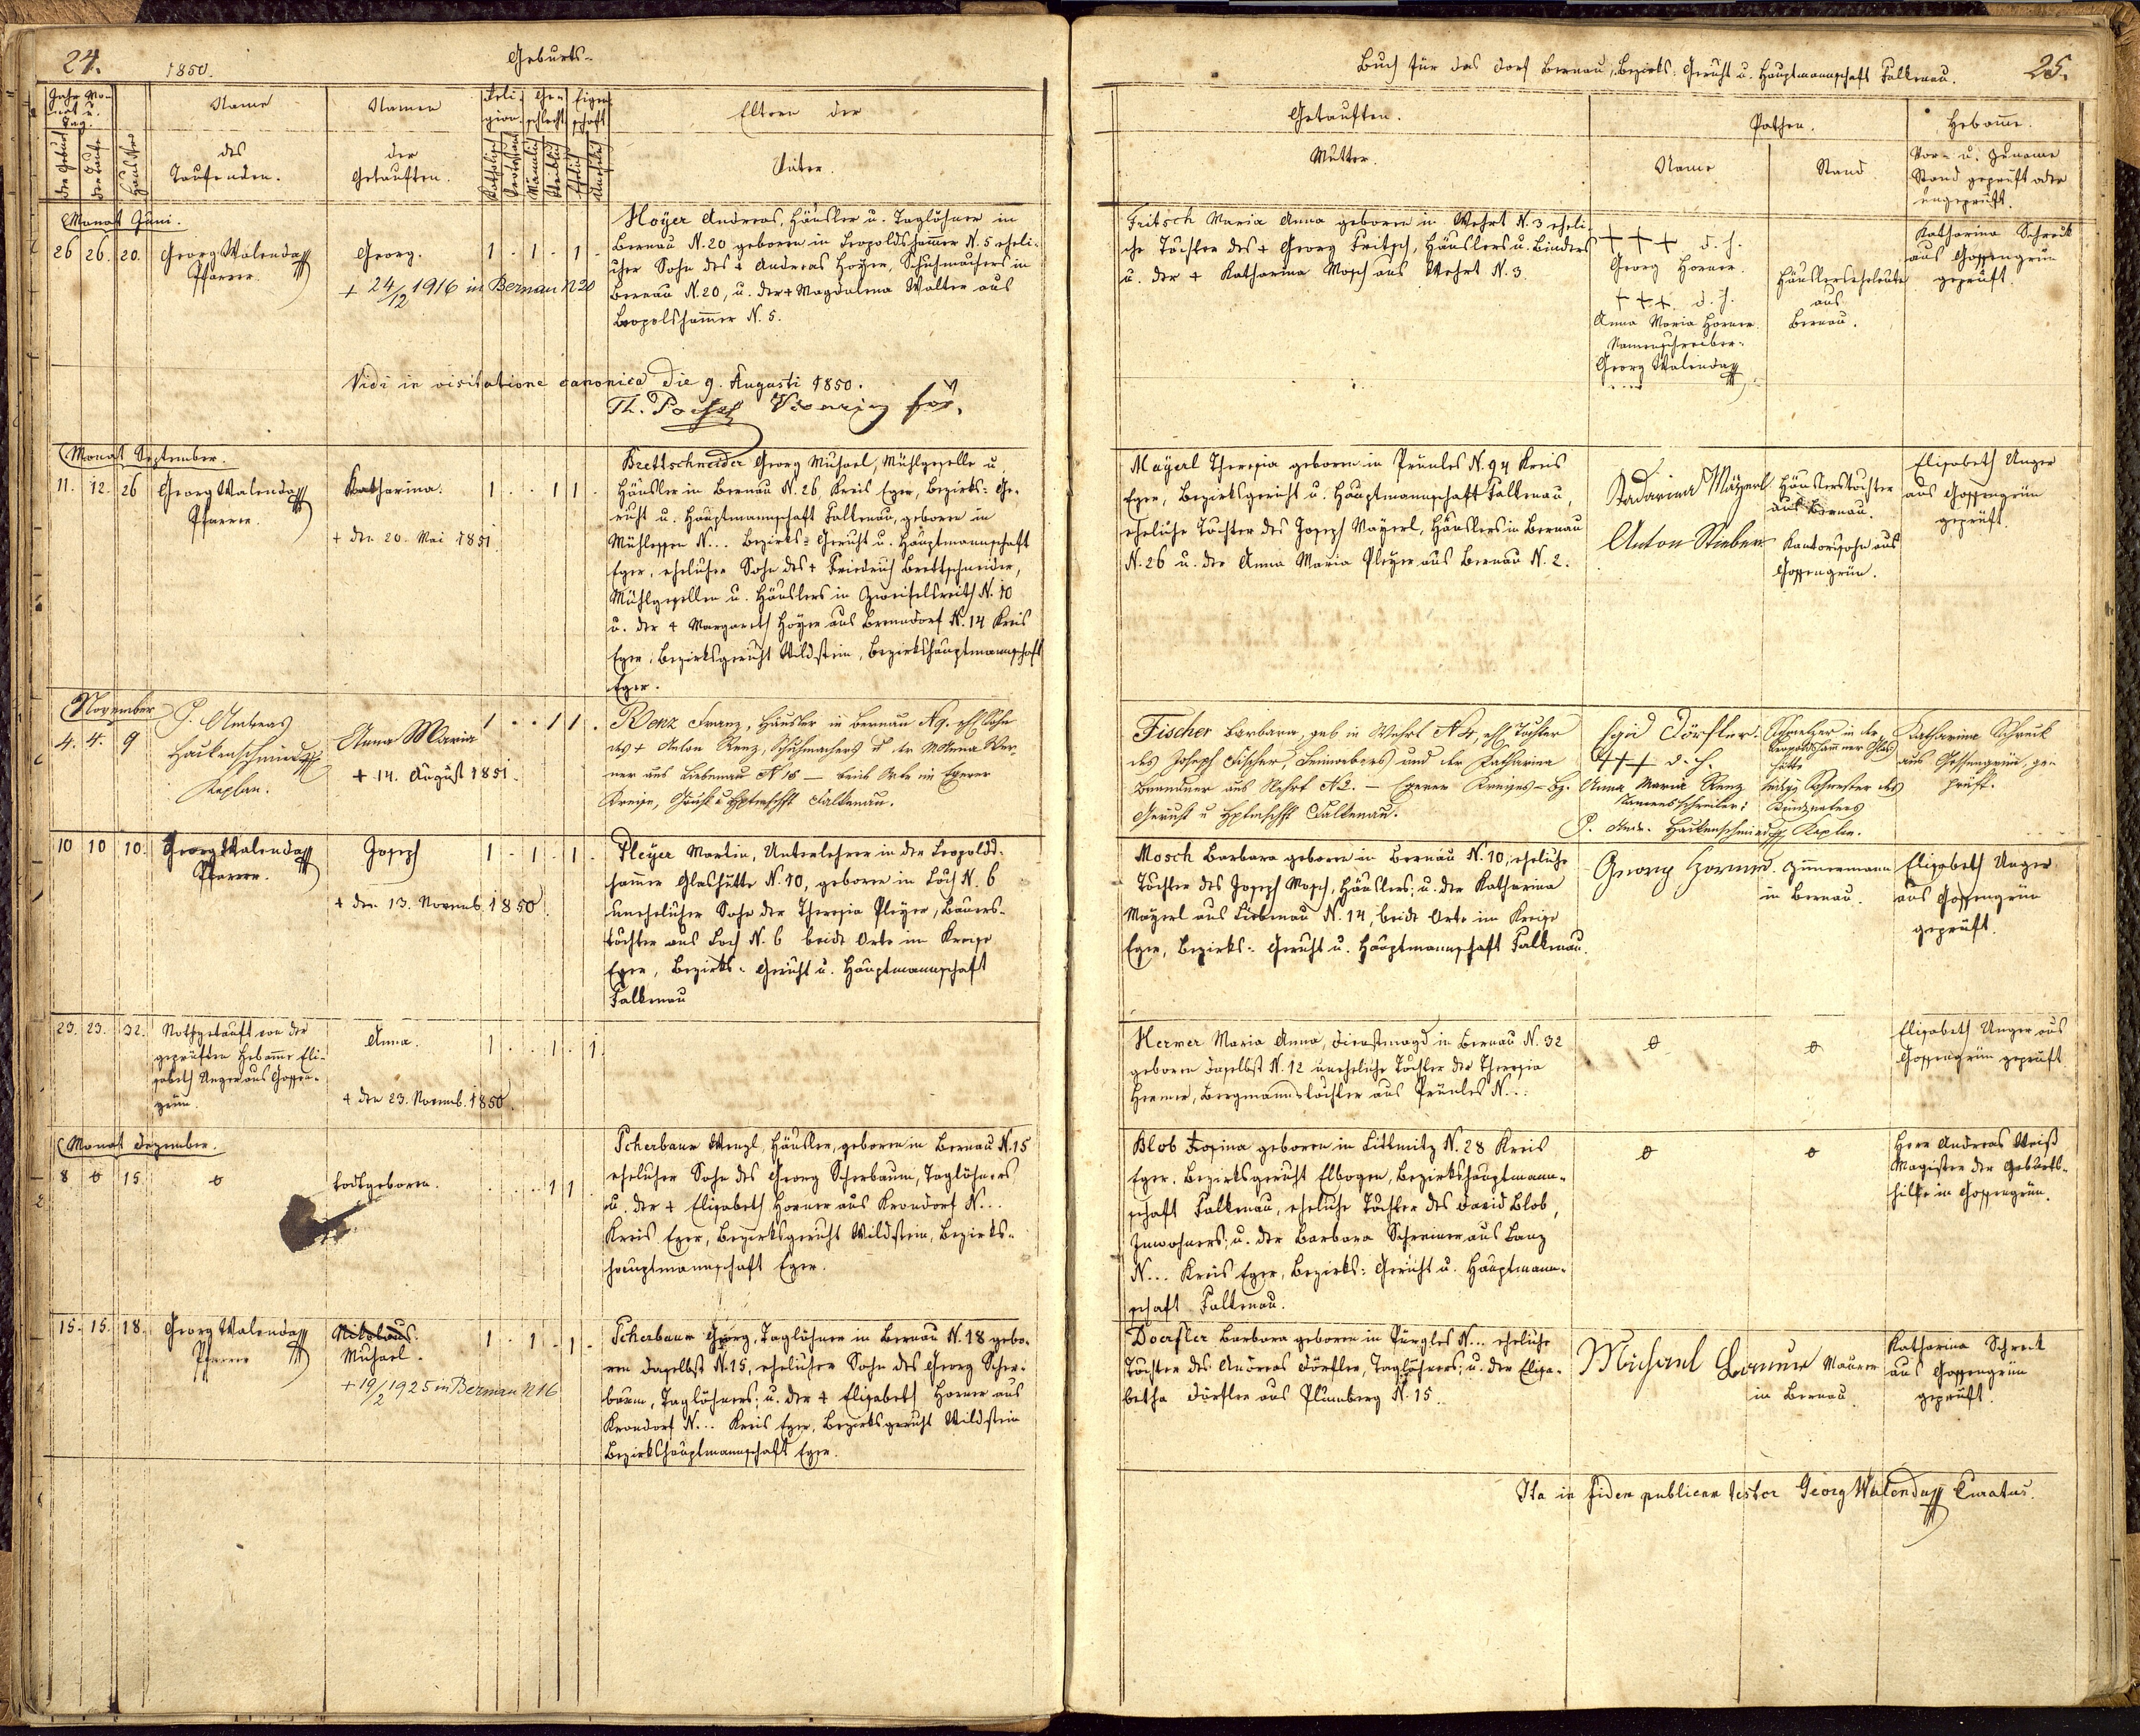 24.
1850.
Geburts-
Jahr Mo-
nat u.
Tag.
der Geburt
der Taufe
Haus Nro
Name
des
Taufenden.
Namen
der
Getauften.
Reli-
gion.
Ge-
schlecht
Eigen-
schaft
Katholisch
Protestant
Männlich
Weiblich
Ehelich
Unehelich
Eltern der
Vater.
Monat Juni.
26 26. 20. Georg Walenda
Pfarrer.
Georg.
+ 24/12 1916 in Bernau N 20
1 . 1 . 1 .
Hoÿer Andreas, Häusler u. Taglöhner in
Bernau N. 20 geboren in Leopoldshamer N. 5 eheli-
cher Sohn des + Andreas Hoÿer, Schuhmachers in
Bernau N. 20, u. der + Magdalena Walter aus
Leopolshamer N. 5.
Vidi in visitatione canonica die 9. Augusti 1850.
Monat September.
11. 12. 26 Georg Walenda
Pfarrer.
Katharina.
+ den 20. Mai 1851.
1 . . 1 1 .
Brettschneider Georg Michael, Mühlgeselle u.
Häusler in Bernau N. 26, Kreis Eger, Bezirks- Ge-
richt u. Hauptmannschaft Falkenau, geboren in
Mühlessen N... Bezirks- Gericht u. Hauptmannschaft
Eger, ehelicher Sohn des + Friedrich Brettschneider,
Mühlgesellen u. Häuslers in Zweifelsreith N. 10
u. der + Margareth Höÿer aus Krondorf N. 14 Kreis
Eger, Bezirksgericht Wildstein, Bezirkshauptmannschaft
Eger.
November
4. 4. 9
P. Andreas
Hackenschmied
Kaplan.
Anna Maria
+ 14. August 1851.
1 . . 1 1 .
Renz Franz, Häusler in Bernau N 9. ehl. Sohn
des + Anton Renz, Schuhmachers u. der M Anna Wer-
ner aus Liebenau N 16 — beide Orte im Egerer
Kreise, Gericht u Hptmschft Falkenau.
10 10 10. Georg Walenda
Pfarrer.
Joseph
+ den 13. Novemb. 1850.
1 . 1 . 1 .
Pleÿer Martin, Unterlehrer in der Leopolds-
hamer Glashütte N. 10, geboren in Loch N. 6
unehelicher Sohn der Theresia Pleÿer, Bauers-
tochter aus Loch N. 6 beide Orte im Kreise
Eger, Bezirks- Gericht u. Hauptmannschaft
Falkenau
23. 23. 32. Nothgetauft von der
geprüften Hebame Eli-
sabeth Unger aus Gossen-
grün.
Anna.
+ den 23. Novemb. 1850.
1 . . 1 . 1.
Monat Dezember.
8 0 15. 0
todtgeboren.
. . . 1 1 .
Scherbaum Wenzl, Häusler, geboren in Bernau N. 15
ehelicher Sohn des Georg Scherbaum, Taglöhners
u. der + Elisabeth Horner aus Krondorf N...
Kreis Eger, Bezirksgericht Wildstein, Bezirks-
hauptmannschaft Eger.
15. 15. 18. Georg Walenda
Pfarrer
Nikolaus.
Michael.
+ 19/2 1925 in Bernau N 16
1 . 1 . 1 .
Scherbaum Georg, Taglöhner in Bernau N. 18 gebo-
ren daselbst N. 15, ehelicher Sohn des Georg Scher-
baum, Taglöhners; u. der + Elisabeth Horner aus
Krondorf N... Kreis Eger, Bezirksgericht Wildstein
Bezirkshauptmannschaft Eger.
Buch für das Dorf Bernau, Bezirks- Gericht u. Hauptmannschaft Falkenau.
25.
Getauften.
Mutter.
Pathen.
Name
Stand.
Hebame.
Vor- u. Zuname
Stand geprüft oder
ungeprüft.
Fritsch Maria Anna geboren in Wehrt N. 3 eheli-
che Tochter des + Georg Fritsch, Häuslers u. Binders
u. der + Katharina Mosch aus Wehrt N. 3.
+++ d. h.
Georg Horner.
+++ d. h.
Anna Maria Horner.
Namenschreiber:
Georg Walenda
Häuslerseheleute
aus
Bernau.
Katharina Schreck
aus Gossengrün
geprüft.
Maÿerl Theresia geboren in Prünles N. 94 Kreis
Eger, Bezirksgericht u. Hauptmannschaft Falkenau,
eheliche Tochter des Joseph Maÿerl, Häuslers in Bernau
N. 26 u. der Anna Maria Pleÿer aus Bernau N. 2.
Kadarina Maÿerl
Häuslerstochter
aus Bernau.
Anton Stieber
Kantorssohn aus
Gossengrün.
Elisabeth Unger
aus Gossengrün
geprüft.
Fischer Barbara, geb in Wehrt N 4, ehl Tochter
des Joseph Fischer, Leinwebers und der Katharina
Brandner aus Rehrt N 2. — Egerer Kreises – Bz.
Gericht u Hptmschft Falkenau.
Egid Dörfler.
+++ d. h.
Anna Maria Renz
Namensschreiber:
P. Andr. Hackenschmied Kaplan.
Schmelzer in der
Leopoldshammer Glas-
hütte
ledige Schwester des
Kindsvaters
Katharina Schreck
aus Gossengrün, ge-
prüft.
Mosch Barbara geboren in Bernau N. 10, eheliche
Tochter des Joseph Mosch, Häuslers; u. der Katharina
Maÿerl aus Liebenau N. 14, beide Orte im Kreise
Eger, Bezirks- Gericht u. Hauptmannschaft Falkenau.
Georg Horner.
Zimmermann
in Bernau.
Elisabeth Unger
aus Gossengrün
geprüft.
Hermer Maria Anna, Dienstmagd in Bernau N. 32
geboren daselbst N. 12 uneheliche Tochter der Theresia
Hermer, Bergmannstochter aus Prünles N...
0 0
Elisabeth Unger aus
Gossengrün geprüft
Blob Rosina geboren in Littmitz N. 28 Kreis
Eger. Bezirksgericht Elbogen, Bezirkshauptmann-
schaft Falkenau, eheliche Tochter des David Blob,
Inwohners; u. der Barbara Schreiner aus Lanz
N... Kreis Eger, Bezirks- Gericht u. Hauptmann-
schaft Falkenau.
0 0
Herr Andreas Weiß
Magister der Geburts-
hilfe in Gossengrün.
Doerfler Barbara geboren in Pürgles N... eheliche
Tochter des Andreas Dörfler, Taglöhners; u. der Elisa-
betha Dörfler aus Plumberg N. 15.
Michael
Maurer
in Bernau.
Katharina Schreck
aus Gossengrün
geprüft.
Ita in fidem publicam testor Georg Walenda Curatus.